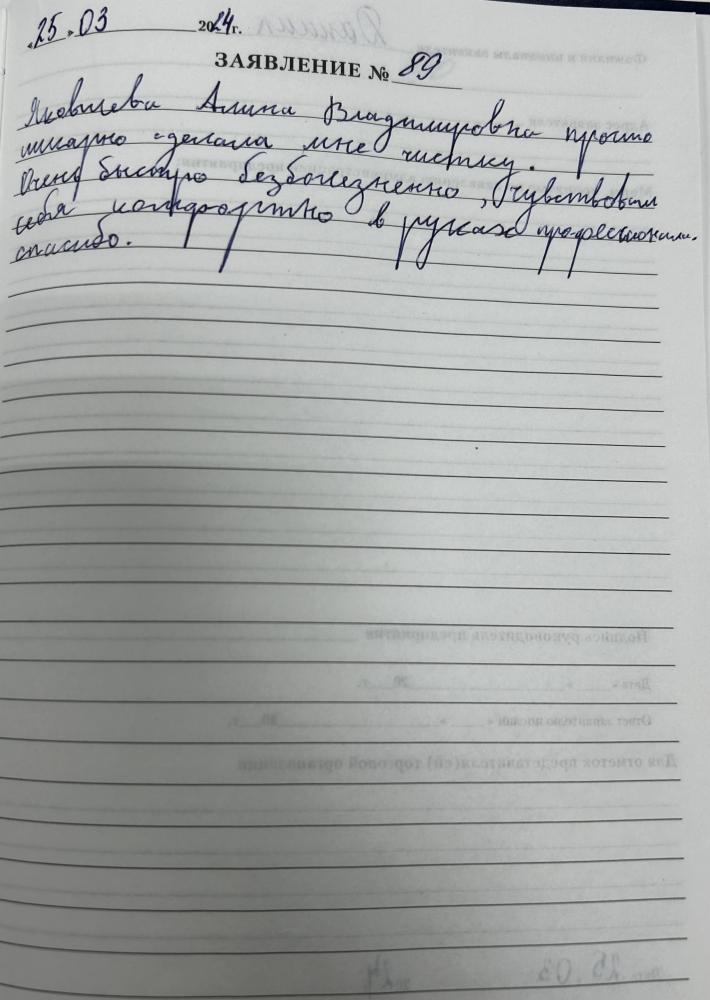 «25.03 2024г.
ЗАЯВЛЕНИЕ № 89
Яковлева Алина Владимировна просто
шикарно сделала мне чистку.
Очень быстро безболезненно, чувствовал
себя комфортно в руках профессионала.
спасибо.